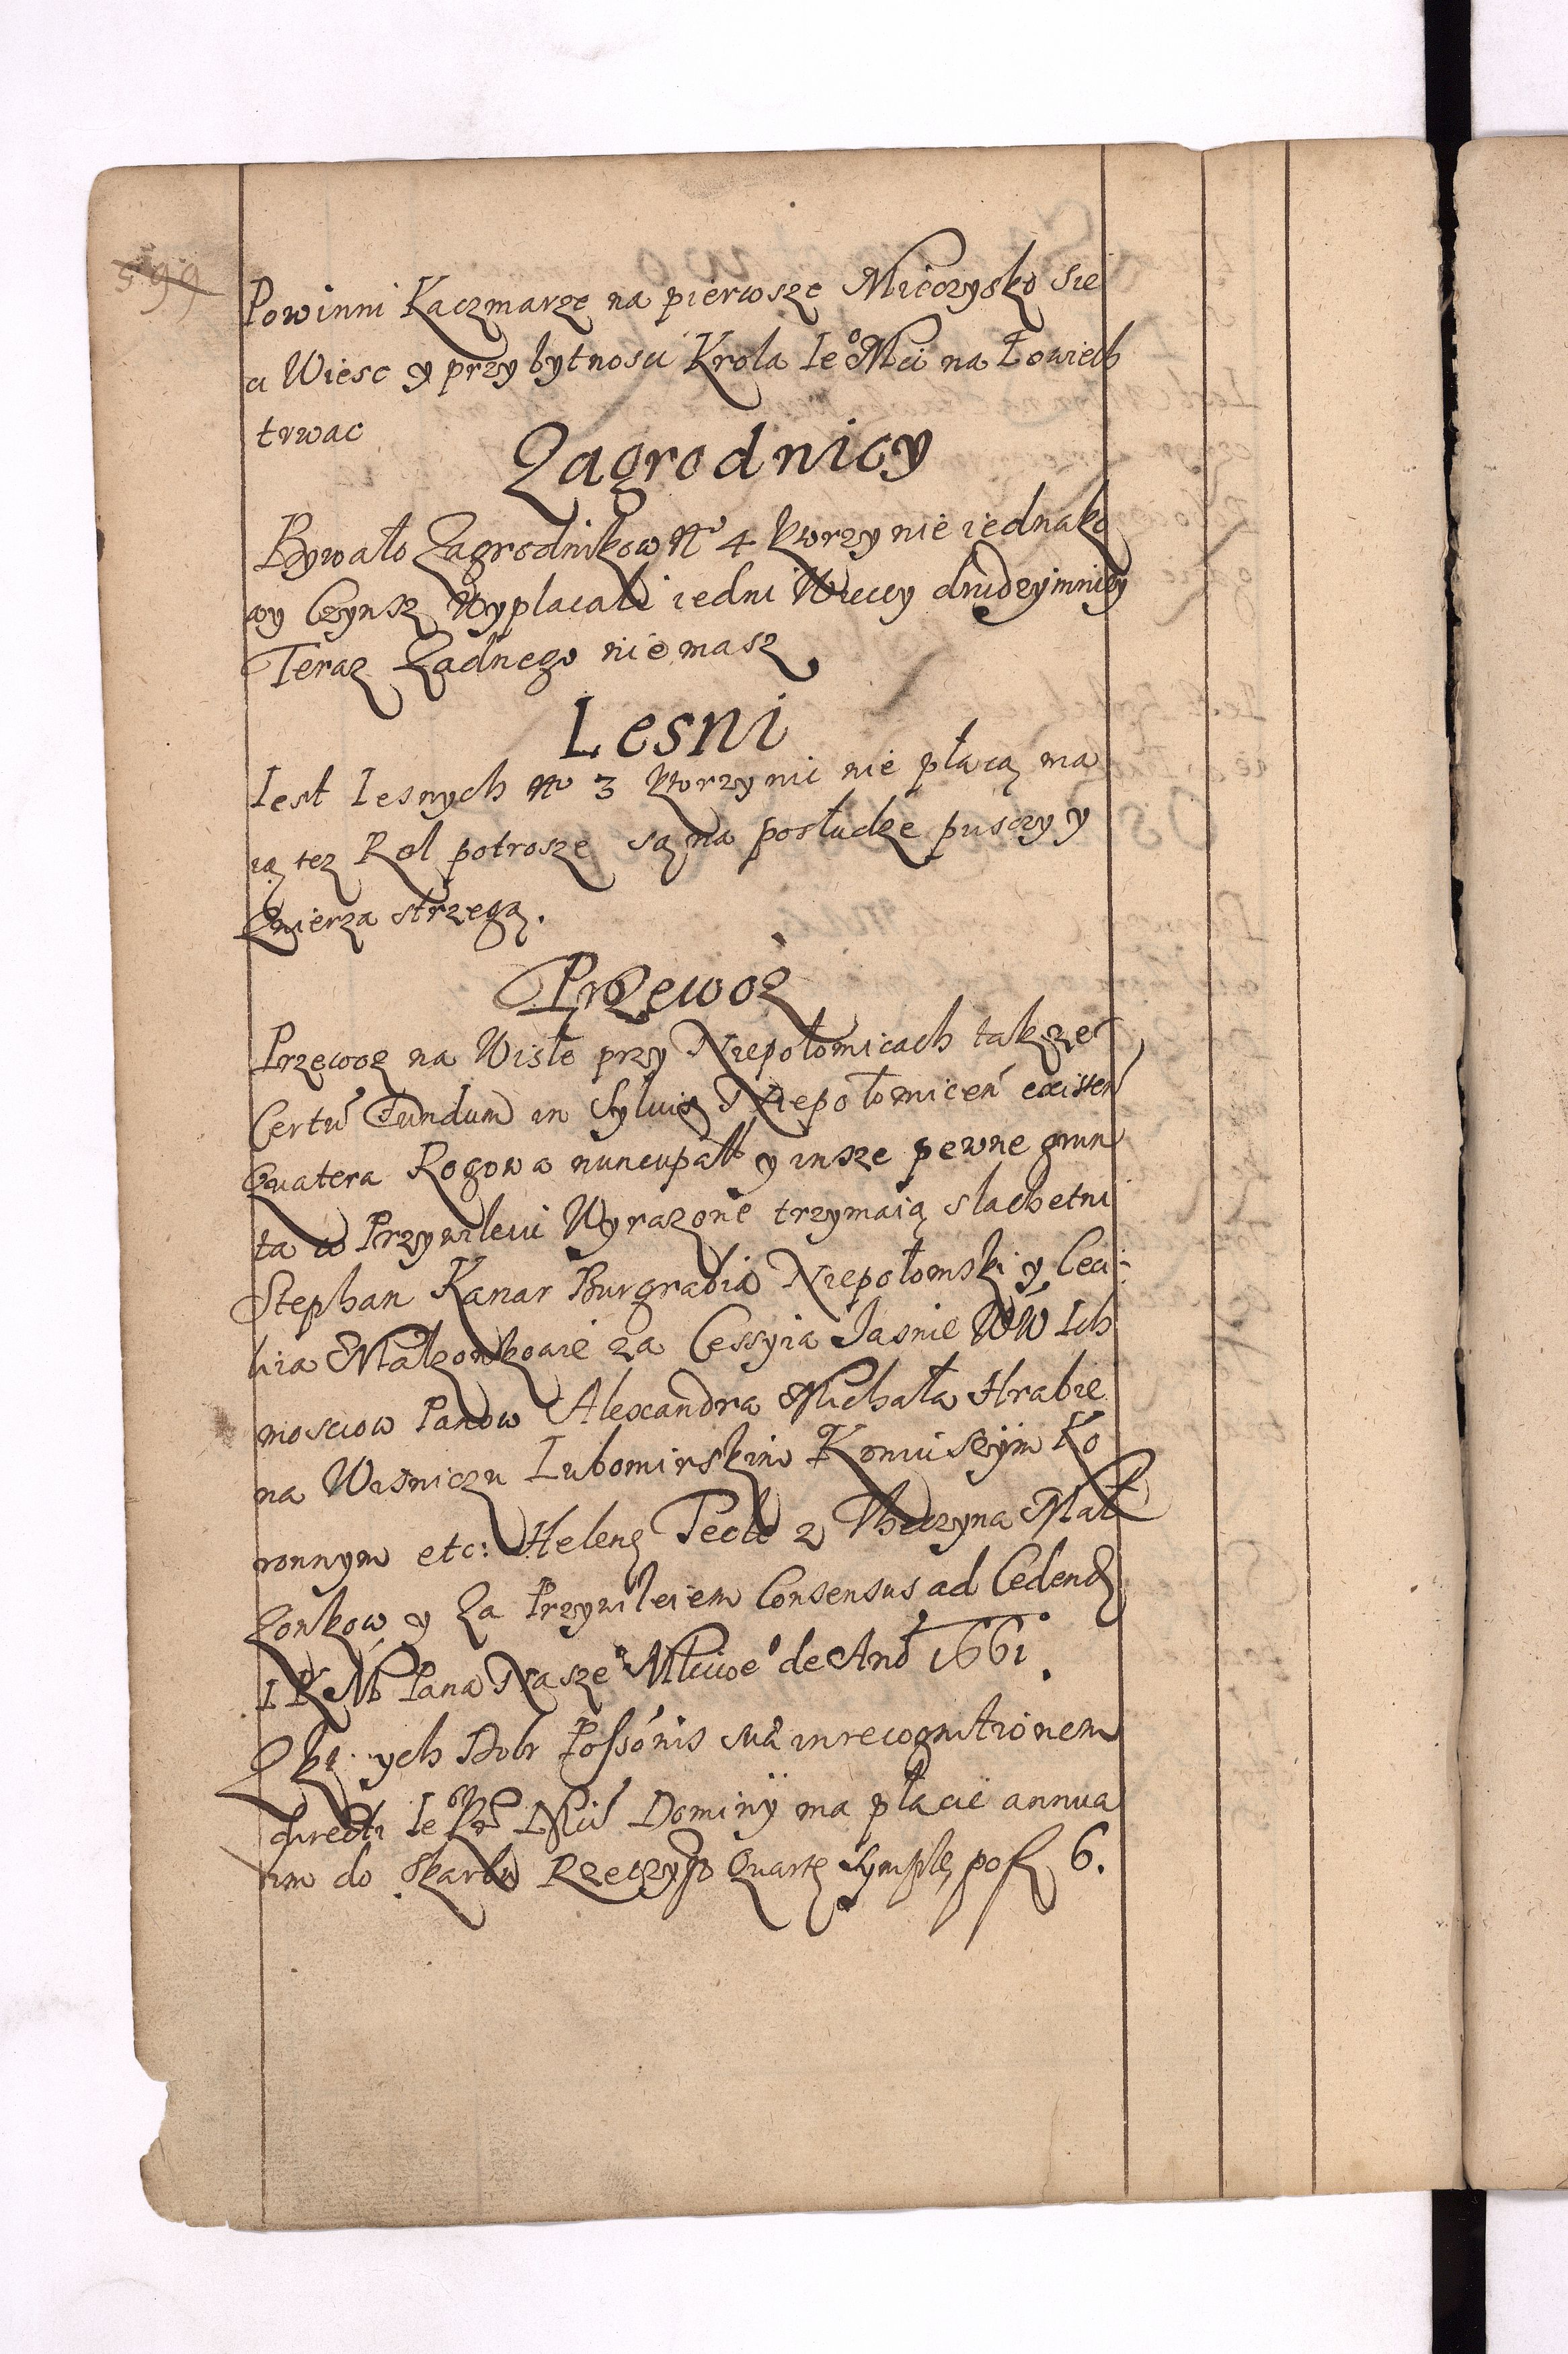 599
Powinni Kaczmarze na pierwsze Mieczysko Sie
a Wiesc y przy bytnosci Krola Ie° Mci na Łowiech
trwac
Zagrodnicy
Bywało Zagrodnikow N° 4 ktorzy nie iednako
wy Czynsz Wyplacali iedni Wiecey drudzy mniey
Teraz Zadnego nie masz
Lesni
Iest Lesnych N° 3 ktorzy nic nie płacą ma
ią tez Rol potrosze są na posłudze pusczy y
Zwierza strzegą.
Przewoz
Przewoz na Wisle przy Niepołomicach takze
Certu Fundum in Sylvis Niepołomicen existen
Kwatera Rogowa nuncupat y insze pewne grun
ta w Przywileiu Wyrazone trzymaią slachetni
Stephan Kanar Burgrabia Niepołomski y Ceci:
lia Małzonkowie za Cessyia Jasnie WW Ich
mosciow Panow Alexandra Michała Hrabie
na Wisniczu Lubomirskim Koniuszym Ko
ronnym etc: Heleną Tecle z Theczyna Mał
zonkow y Za Przywileiem Consensus ad Cedend
I K M Pana Nasze° Mciwe° de An° 1661.
Z kt: ych Dobr Possónis sua in recognitionem
directi Ie Kr Mci Dominÿ ma płacic annua
tim do Skarbu Rzeczyp Quartę Symplę pof 6.